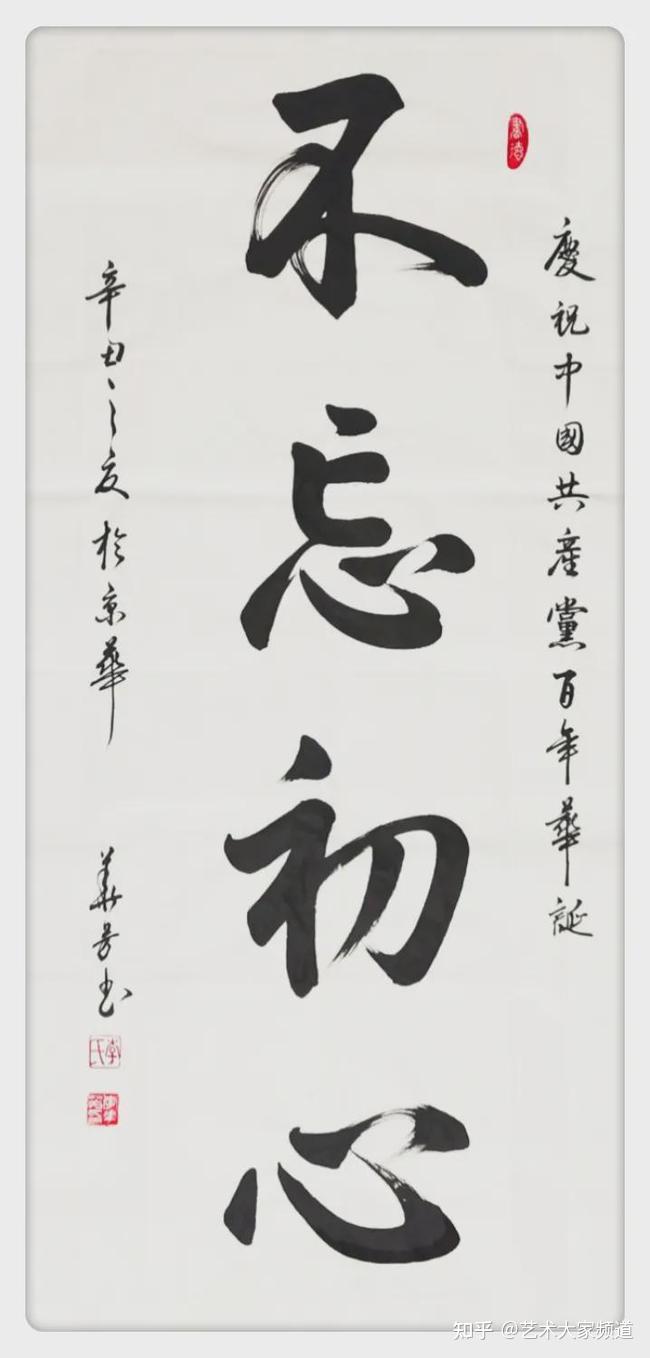 慶祝中國共産黨百年華誕
不忘初心
辛丑之夏於京華
華芳书
李氏
知乎 @艺术大家频道